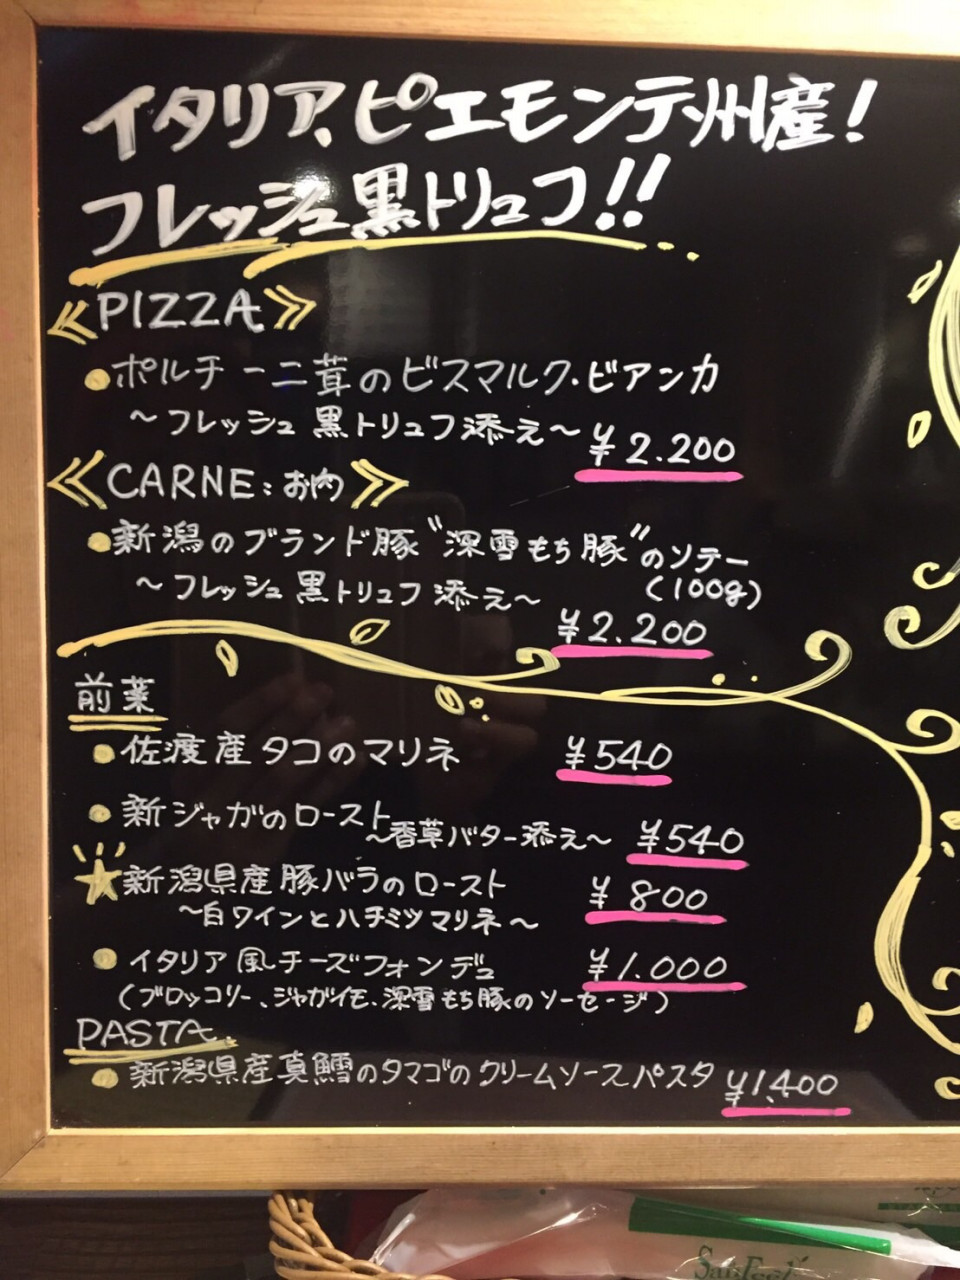 イタリア、ピエモンテ州産!
フレッシュ黒トリュフ!!
≪PIZZA≫
●ポルチーニ茸のビスマルク・ビアンカ
~フレッシュ黒トリュフ添え~
¥2.200
≪CARNE:お肉≫
●新潟のブランド豚"深雪もち豚"のソテー
(100g)
~フレッシュ黒トリュフ添え~
¥2.200
前菜
●佐渡産タコのマリネ ¥540
●新ジャガのロースト
~香草バター添え~ ¥540
★新潟県産豚バラのロースト ¥800
~白ワインとハチミツマリネ~
●イタリア風チーズフォンデュ ¥1.000
(ブロッコリー、ジャガイモ、深雪もち豚のソーセージ)
PASTA
●新潟県産真鱈のタマゴのクリームソースパスタ ¥1.400